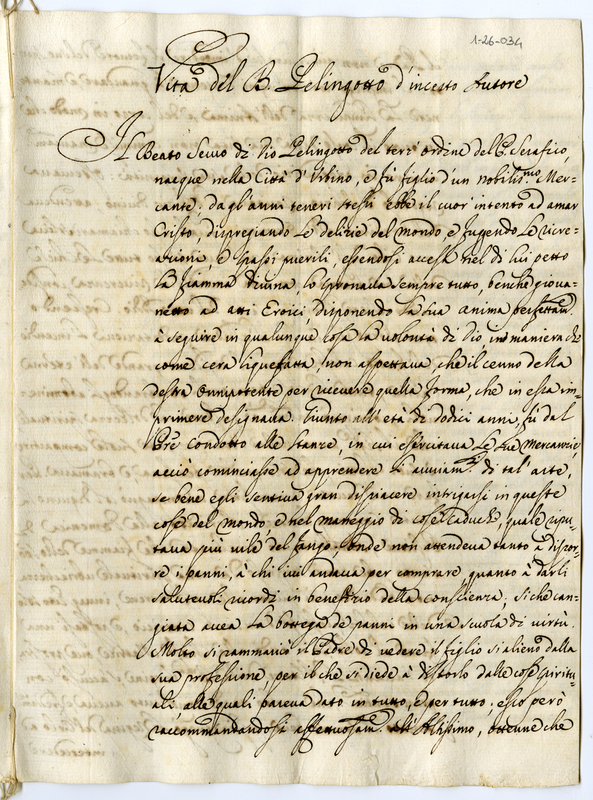 1-26-034
Vita del B. Pelingotto d'incerto Autore
Il Beato Servo di Dio Pelingotto del terz' ordine del P. Serafico,
nacque nella Città d'Urbino, e fù figlio d'un nobilis.mo Mer-
cante: dagl'anni teneri stessi ebbe il cuor' intento ad amar
Cristo, dispregiando le delizie del mondo, e fugendo le ricre-
azioni, e spassi puerili, essendosi accesa nel di lui petto
la fiamma divina, lo spronava sempre tutto, benche giova-
netto ad atti Eroici, disponendo la sua anima perfettam.
à seguire in qualunque cosa la volontà di Dio in maniera che
come cera liquefatta, non aspettava, che il cenno della
destra Onnipotente per ricevere quella forma, che in essa im-
primere designava. Giunto all'età di dodici anni, fù dal
Pre condotto alle stanze, in cui esercitava le sue Mercanzie,
acciò cominciasse ad apprendere gl'avviam.ti di tal' arte,
se bene egli sentiva gran dispiacere intrigarsi in queste
cose del mondo, e nel maneggio di cose Caduche, quale ripu-
tava più vile del fango; onde non attendeva tanto à dispor-
re i panni, à chi ivi andava per comprare quanto à darli
salutevoli ricordi in beneficio della conscienza, siche can-
giata avea la bottega de panni in una scuola di virtù.
Molto si rammaricò il Padre di vedere il figlio si alieno dalla
sua professione, per il che si diede à distorlo dalle cose spiritu-
ali, alle quali pareva dato in tutto, e per tutto; esso però
raccommandandosi affettuosam. all'Altissimo, ottenne che